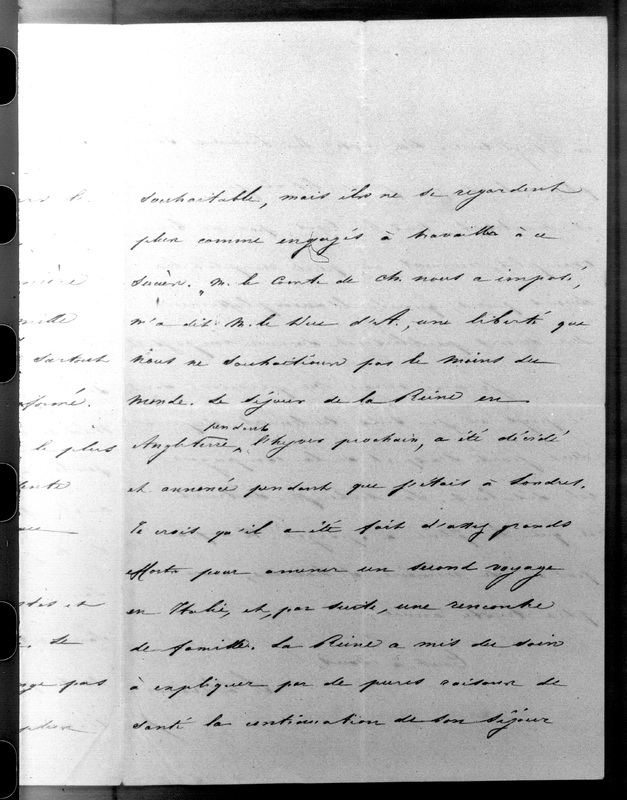 souhaitable, mais ils ne se regardent
plus comme engagés à travailler à ce
succès. "M. le Comte de Ch. nous a imposé,
m'a dit M. le Duc d'A., une liberté que
nous ne souhaitions pas le moins du
monde. Le séjour de la Reine en
pendant
Angleterre, l'hyver prochain, a été décidé
et annoncé pendant que j'étais à Londres.
Je crois qu'il a été fait d'assez grands
efforts pour amener un second voyage
en Italie, et, par suite, une rencontre
de famille. La Reine a mis du soin
à expliquer par de pures raisons de
santé la continuation de son séjour
surtout
le plus
pas